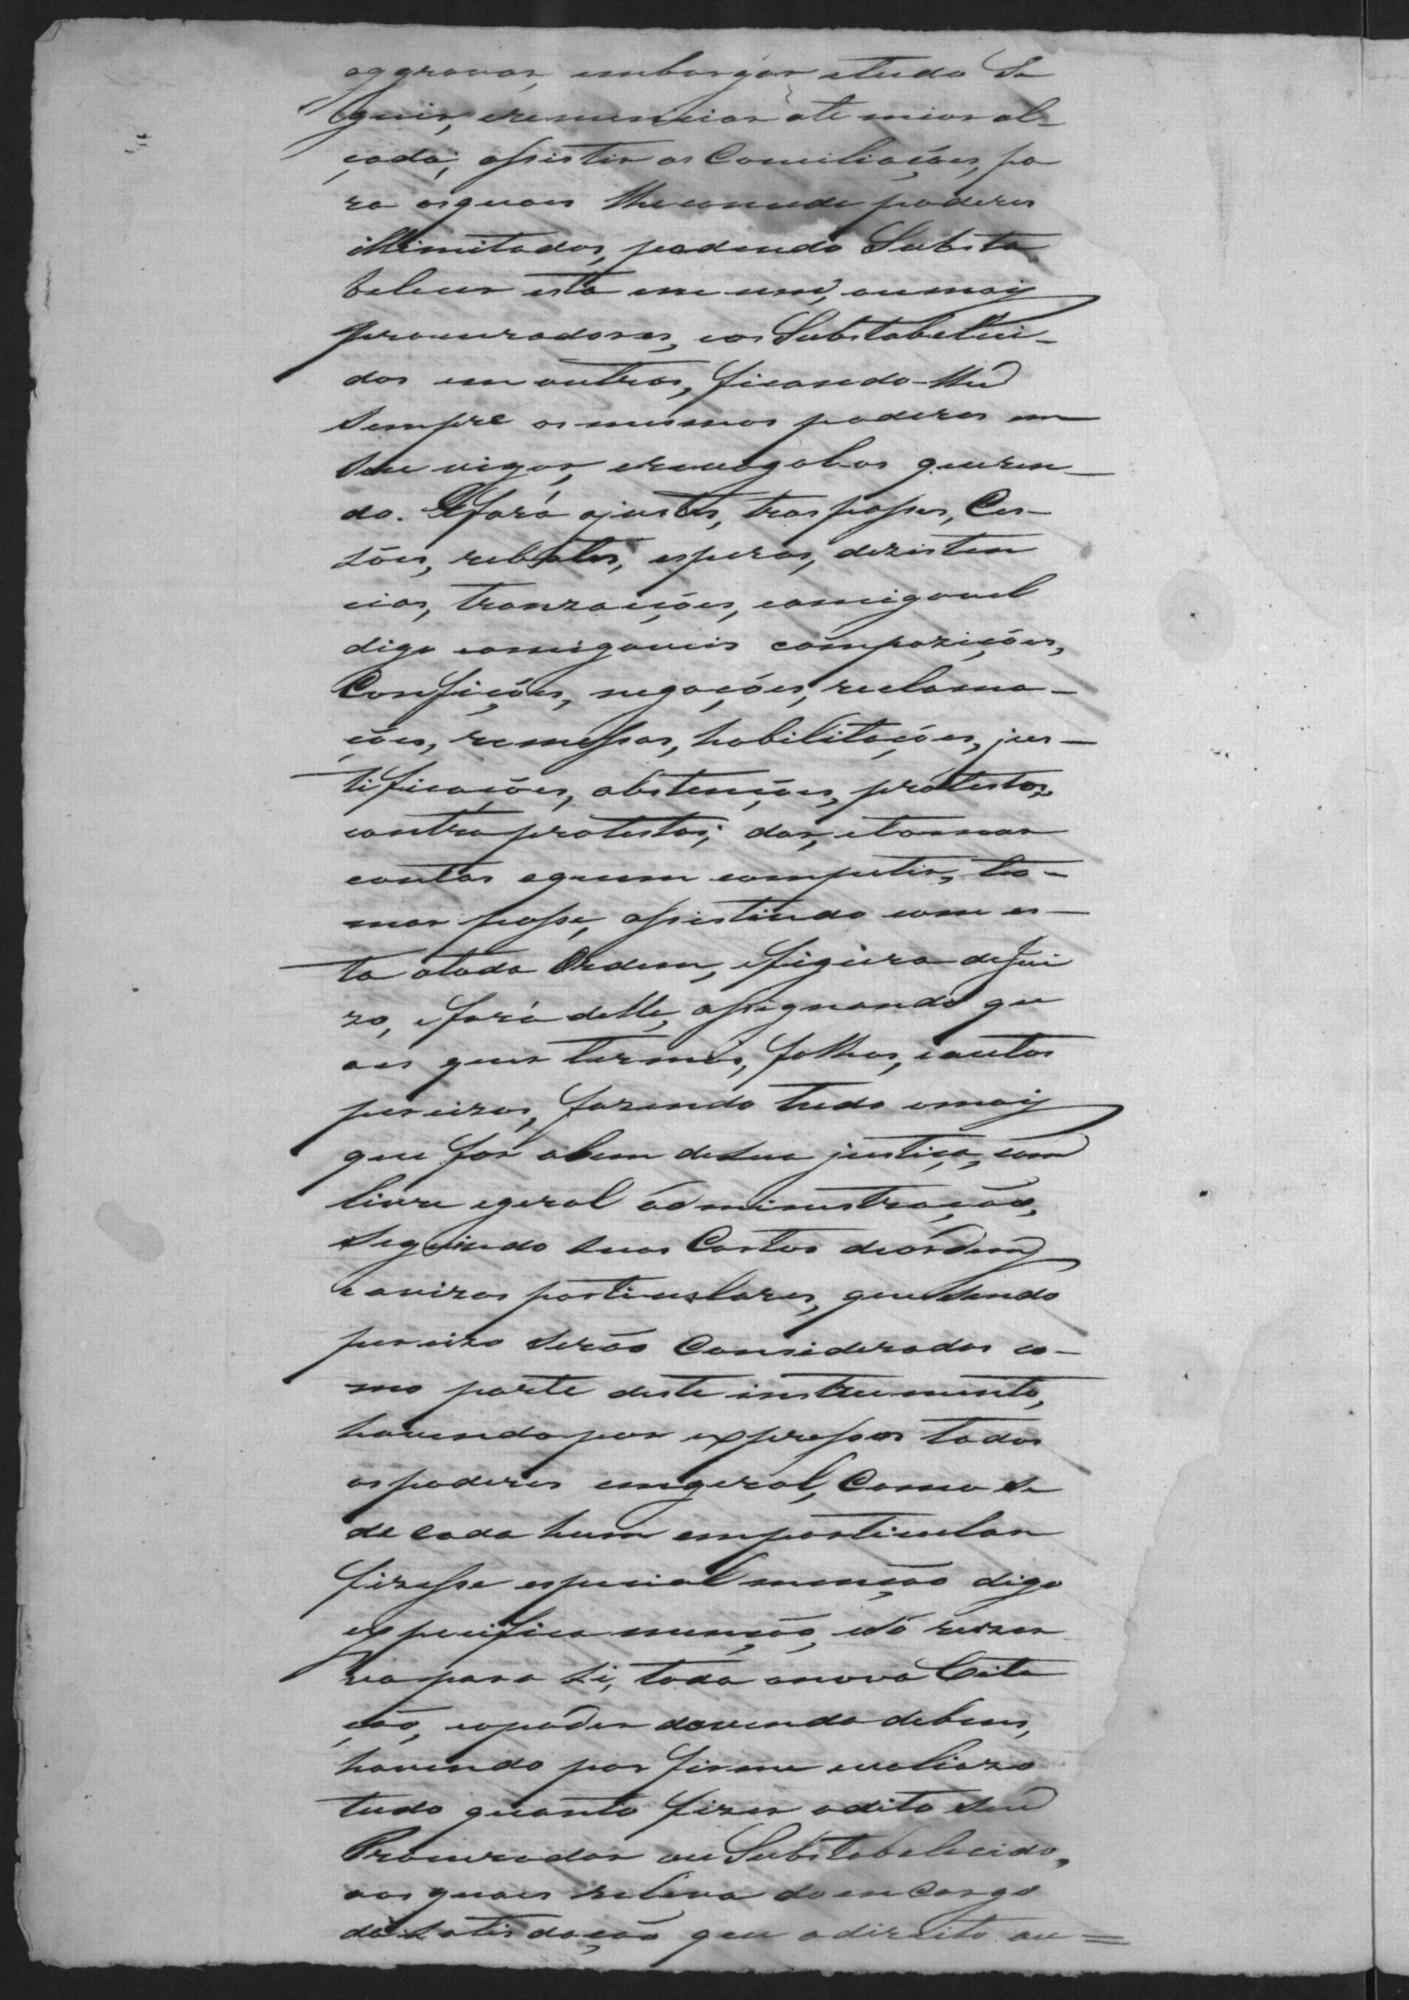 aggravar, embargar etudo Se
guir, erenunciar até mior al-
çada; assistir as Conciliações, pa
ra asquaes lheconcede poderes
illimitados, podendo Substa
belecer esta em um, oumais
procuradores, eos Substabeleci-
dos em outros, ficando-lhe
sempre os mesmos poderes em
seu vigor, erevogalos queren-
do. Efará ajustes, traspasses, Ces-
sões, rebates, esperas, dezisten
cias, tranzacções, eamigavel
digo eamigaveis compozições,
Confições, negações, reclama-
ções, remessas, habilitações, jus-
tificações, abstenções, protestos,
contraprotestos; dar, etomar
contas aquem competir, to-
mar posse, assistindo com es-
ta atoda Ordem, efigura dejui
zo, efóra delle, assignando qu
aes quer termos, folhas, eautos
precizos, fazendo tudo omais
que for abem desua justiça, com
livre egeral administração,
Seguindo suas Cartas deordens
eavizos particulares, quesendo
precizo serão Considerados co-
mo parte deste instrumento,
havendopor expressos todos
ospoderes emgeral, Como se
de cada hum emparticular
fizesse especial menção digo
expecifica menção, esó rezer
vapara Si, toda anova Cita
ção, eopoder davenda debens,
havendo por firme evaliozo
tudo quanto fizer odito seu
Procurador ou Substabelecido,
aos quaes releva doencargo
da satisdação que odireito ou=